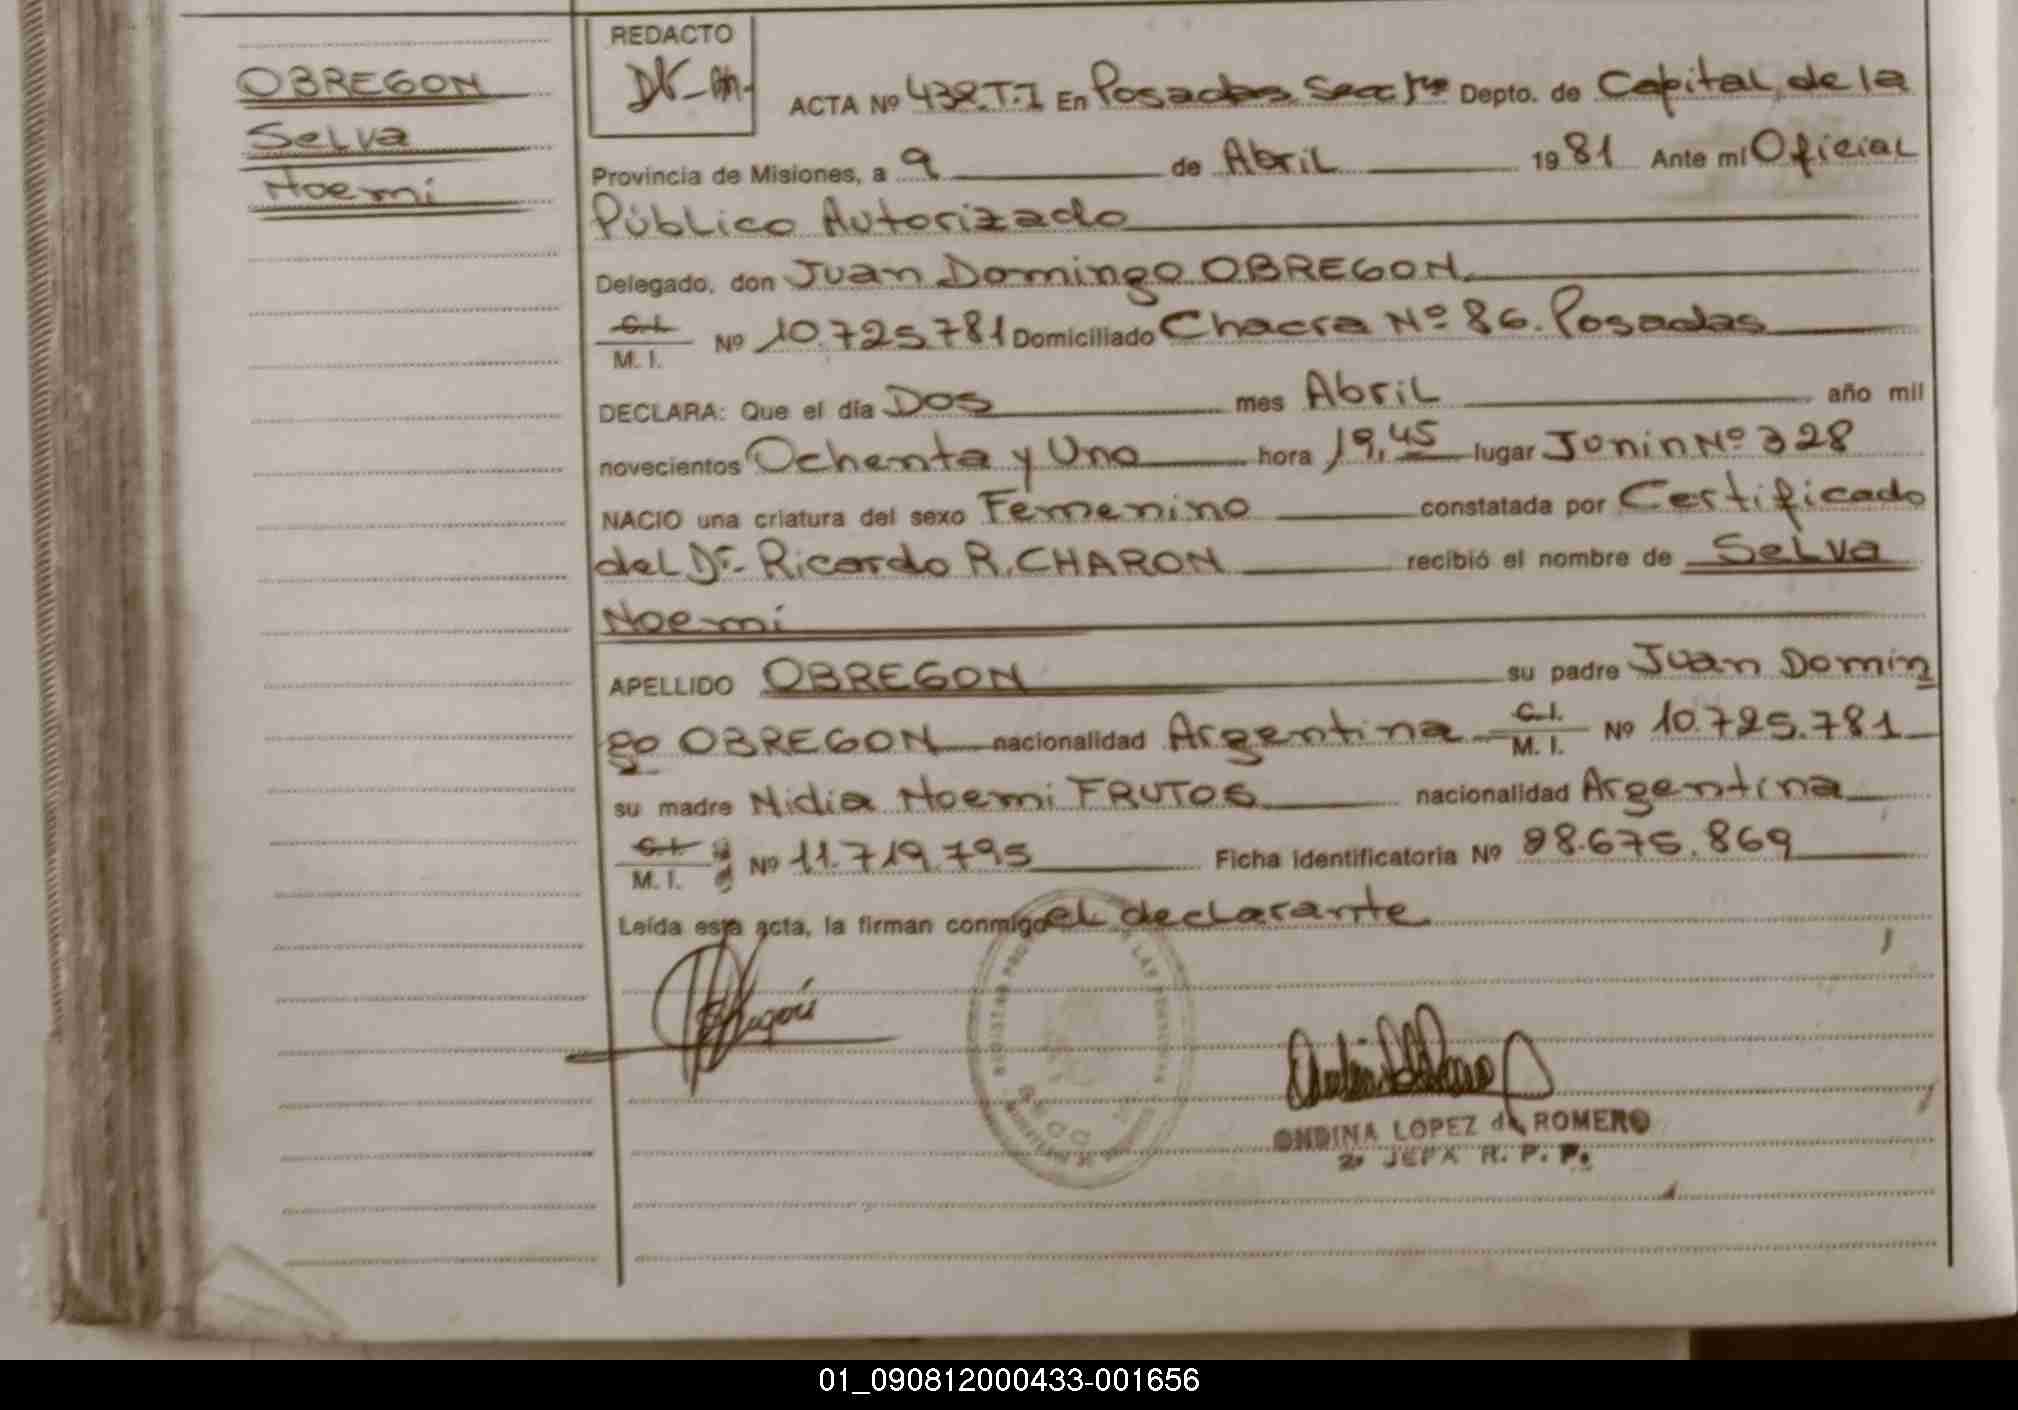 OBREGON
Selva
Noemi
REDACTO
ACTA Nº 438.T.I En Posadas Secc 1ra Depto. de Capital, de la
Provincia de Misiones, a 9 de Abril 1981 Ante mí Oficial
Público Autorizado
Delegado, don Juan Domingo OBREGON
C.I.
M. I. Nº 10.725.781 Domiciliado Chacra Nº 86. Posadas
DECLARA: Que el día Dos mes Abril año mil
novecientos Ochenta y Uno hora 19,45 lugar Junin Nº 328
NACIO una criatura del sexo Femenino constatada por Certificado
del Dr. Ricardo R. CHARON recibió el nombre de Selva
Noemi
APELLIDO OBREGON su padre Juan Domin
go OBREGON nacionalidad Argentina C.I. M. I. Nº 10.725.781
su madre Nidia Noemi FRUTOS nacionalidad Argentina
C.I.
M. I. Nº 11.719.795 Ficha identificatoria Nº 28.675.869
Leída esta acta, la firman conmigo el declarante
ONDINA LOPEZ de ROMERO
2a JEFA R. P. P.
01_090812000433-001656